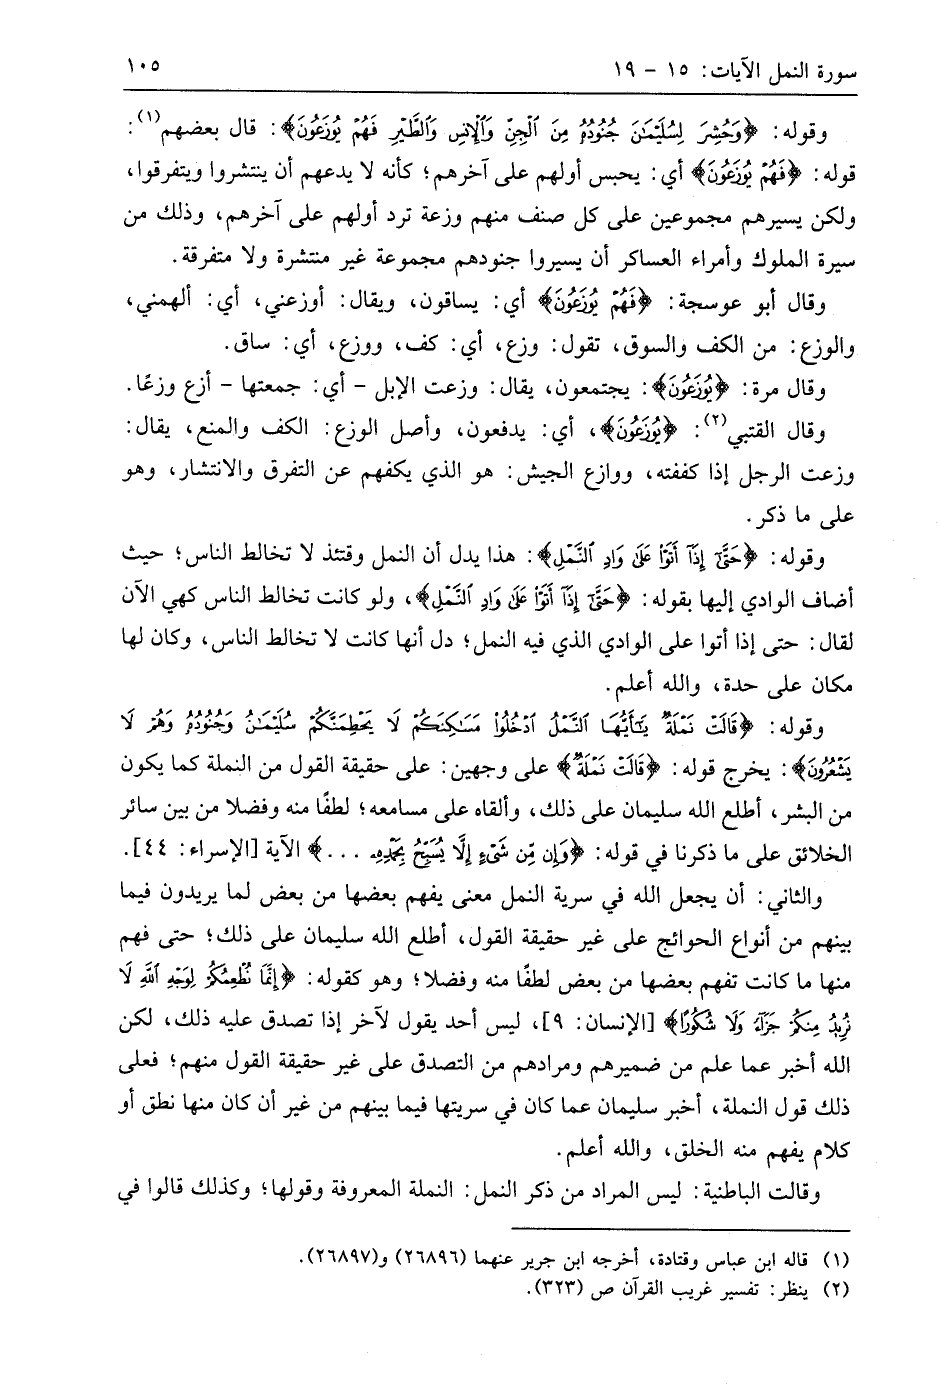 سورة النمل الآيات: ١٥ - ١٩
١٠٥
وقوله: ﴿وَحُشِرَ لِسُلَيْمَٰنَ جُنُودُهُۥ مِنَ ٱلْجِنِّ وَٱلْإِنسِ وَٱلطَّيْرِ فَهُمْ يُوزَعُونَ﴾: قال بعضهم(١):
قوله: ﴿فَهُمْ يُوزَعُونَ﴾ أي: يحبس أولهم على آخرهم؛ كأنه لا يدعهم أن ينتشروا ويتفرقوا،
ولكن يسيرهم مجموعين على كل صنف منهم وزعة ترد أولهم على آخرهم، وذلك من
سيرة الملوك وأمراء العساكر أن يسيروا جنودهم مجموعة غير منتشرة ولا متفرقة.
وقال أبو عوسجة: ﴿فَهُمْ يُوزَعُونَ﴾ أي: يساقون، ويقال: أوزعني، أي: ألهمني،
والوزع: من الكف والسوق، تقول: وزع، أي: كف، ووزع، أي: ساق.
وقال مرة: ﴿يُوزَعُونَ﴾: يجتمعون، يقال: وزعت الإبل - أي: جمعتها - أزع وزعًا.
وقال القتبي(٢): ﴿يُوزَعُونَ﴾، أي: يدفعون، وأصل الوزع: الكف والمنع، يقال:
وزعت الرجل إذا كففته، ووازع الجيش: هو الذي يكفهم عن التفرق والانتشار، وهو
على ما ذكر.
وقوله: ﴿حَتَّىٰٓ إِذَآ أَتَوْا۟ عَلَىٰ وَادِ ٱلنَّمْلِ﴾: هذا يدل أن النمل وقتئذ لا تخالط الناس؛ حيث
أضاف الوادي إليها بقوله: ﴿حَتَّىٰٓ إِذَآ أَتَوْا۟ عَلَىٰ وَادِ ٱلنَّمْلِ﴾، ولو كانت تخالط الناس كهي الآن
لقال: حتى إذا أتوا على الوادي الذي فيه النمل؛ دل أنها كانت لا تخالط الناس، وكان لها
مكان على حدة، والله أعلم.
وقوله: ﴿قَالَتْ نَمْلَةٌ يَٰٓأَيُّهَا ٱلنَّمْلُ ٱدْخُلُوا۟ مَسَٰكِنَكُمْ لَا يَحْطِمَنَّكُمْ سُلَيْمَٰنُ وَجُنُودُهُۥ وَهُمْ لَا
يَشْعُرُونَ﴾: يخرج قوله: ﴿قَالَتْ نَمْلَةٌ﴾ على وجهين: على حقيقة القول من النملة كما يكون
من البشر، أطلع الله سليمان على ذلك، وألقاه على مسامعه؛ لطفًا منه وفضلا من بين سائر
الخلائق على ما ذكرنا في قوله: ﴿وَإِن مِّن شَىْءٍ إِلَّا يُسَبِّحُ بِحَمْدِهِۦ ...﴾ الآية [الإسراء: ٤٤].
والثاني: أن يجعل الله في سرية النمل معنى يفهم بعضها من بعض لما يريدون فيما
بينهم من أنواع الحوائج على غير حقيقة القول، أطلع الله سليمان على ذلك؛ حتى فهم
منها ما كانت تفهم بعضها من بعض لطفًا منه وفضلا؛ وهو كقوله: ﴿إِنَّمَا نُطْعِمُكُمْ لِوَجْهِ ٱللَّهِ لَا
نُرِيدُ مِنكُمْ جَزَآءً وَلَا شُكُورًا﴾ [الإنسان: ٩]، ليس أحد يقول لآخر إذا تصدق عليه ذلك، لكن
الله أخبر عما علم من ضميرهم ومرادهم من التصدق على غير حقيقة القول منهم؛ فعلى
ذلك قول النملة، أخبر سليمان عما كان في سريتها فيما بينهم من غير أن كان منها نطق أو
كلام يفهم منه الخلق، والله أعلم.
وقالت الباطنية: ليس المراد من ذكر النمل: النملة المعروفة وقولها؛ وكذلك قالوا في
(١) قاله ابن عباس وقتادة، أخرجه ابن جرير عنهما (٢٦٨٩٦) و(٢٦٨٩٧).
(٢) ينظر: تفسير غريب القرآن ص (٣٢٣).